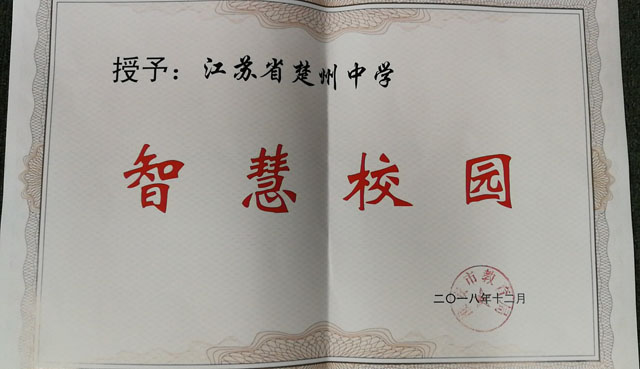 授予：江苏省楚州中学
智慧校园
二〇一八年十二月